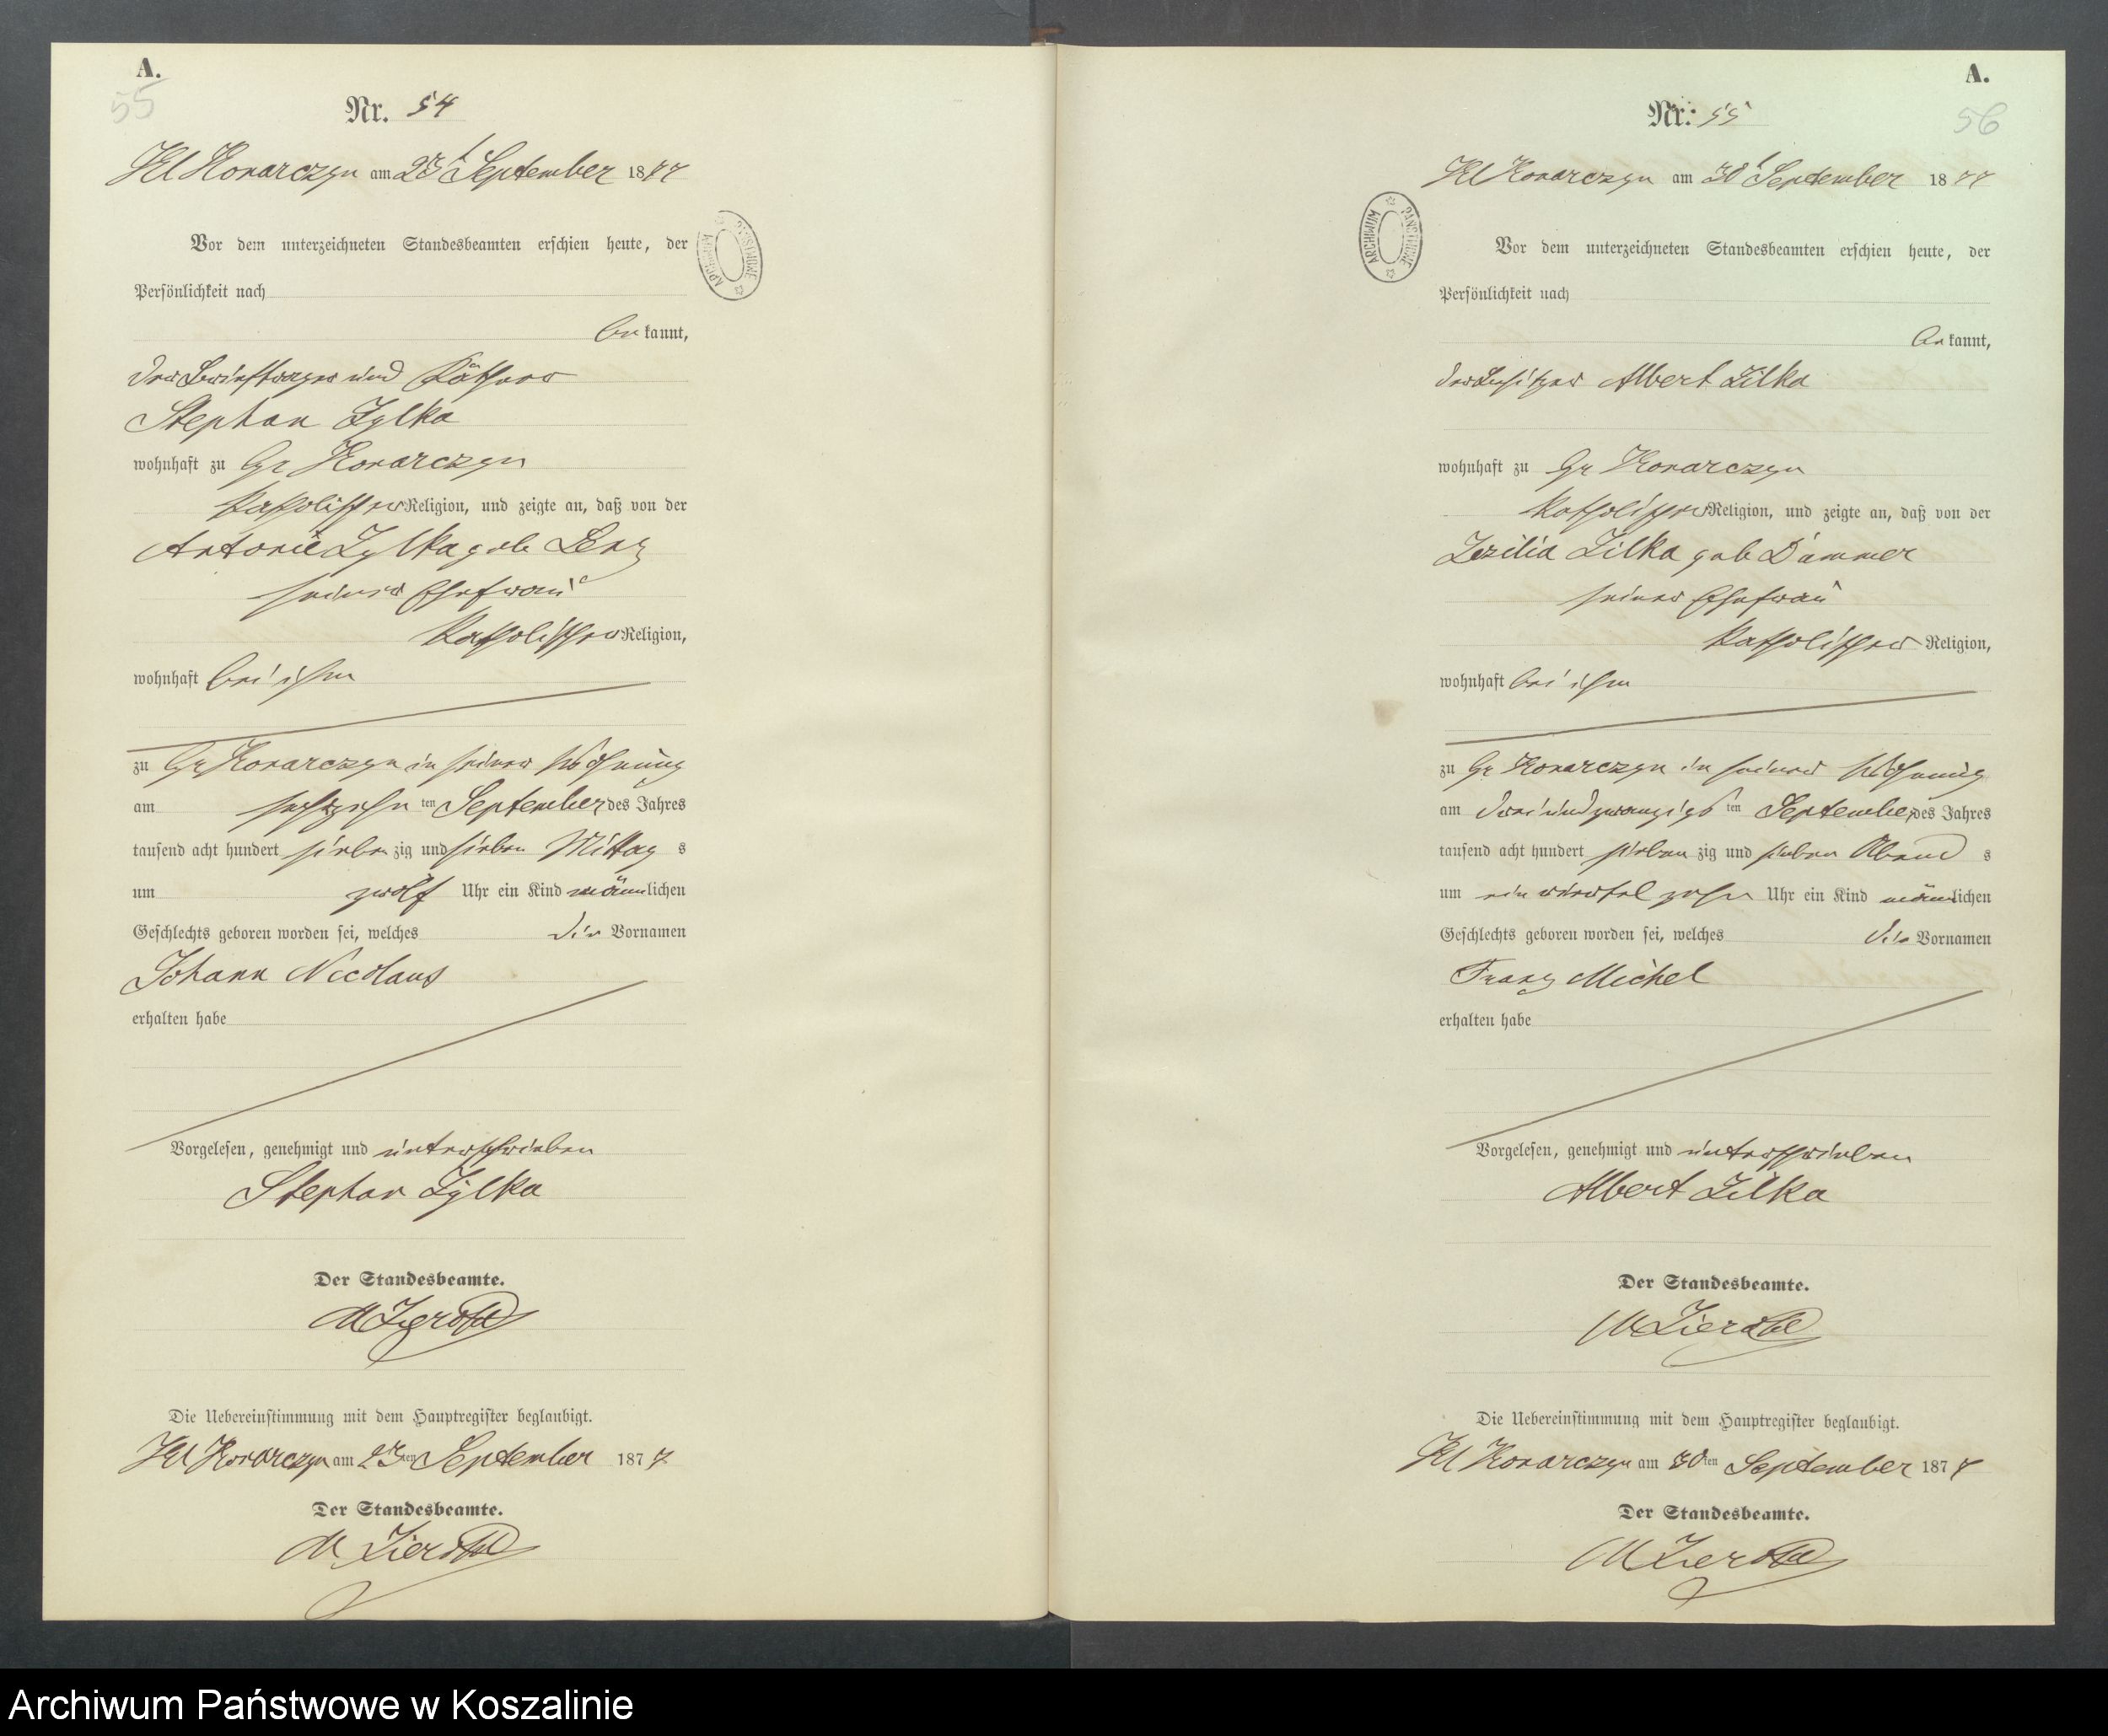 A.
55
Nr. 54
Kl Konarczyn am 23t September 1877
Vor dem unterzeichneten Standesbeamten erschien heute, der
Persönlichkeit nach
be kannt,
der Briefträger und Käthner
Stephan Zylka
wohnhaft zu Gr Konarczyn
katholischer Religion, und zeigte an, daß von der
Antonie Zylka geb Lenz
seiner Ehefrau
katholischer Religion,
wohnhaft bei ihm
zu Gr Konarczyn in seiner Wohnung
am sechszehn ten September des Jahres
tausend acht hundert sieben zig und sieben Mittag s
um zwölf Uhr ein Kind männlichen
Geschlechts geboren worden sei, welches die Vornamen
Johann Nicolaus
erhalten habe
Vorgelesen, genehmigt und unterschrieben
Stephan Zylka
Der Standesbeamte.
Die Uebereinstimmung mit dem Hauptregister beglaubigt.
Kl Konarczyn am 23ten September 1877
Der Standesbeamte.
ARCHIWUM PAŃSTWOWE
A.
56
Nr. 55
Kl Konarczyn am 30t September 1877
Vor dem unterzeichneten Standesbeamten erschien heute, der
Persönlichkeit nach
be kannt,
der Besitzer Albert Zilka
wohnhaft zu Gr Konarczyn
katholischer Religion, und zeigte an, daß von der
Zezilia Zilka geb Dammer
seiner Ehefrau
katholischer Religion,
wohnhaft bei ihm
zu Gr Konarczyn in seiner Wohnung
am dreiundzwanzigs ten September des Jahres
tausend acht hundert sieben zig und sieben Abend s
um ein viertel zehn Uhr ein Kind männlichen
Geschlechts geboren worden sei, welches die Vornamen
Franz Michel
erhalten habe
Vorgelesen, genehmigt und unterschrieben
Albert Zilka
Der Standesbeamte.
Die Uebereinstimmung mit dem Hauptregister beglaubigt.
Kl Konarczyn am 30ten September 1877
Der Standesbeamte.
ARCHIWUM PAŃSTWOWE
Archiwum Państwowe w Koszalinie